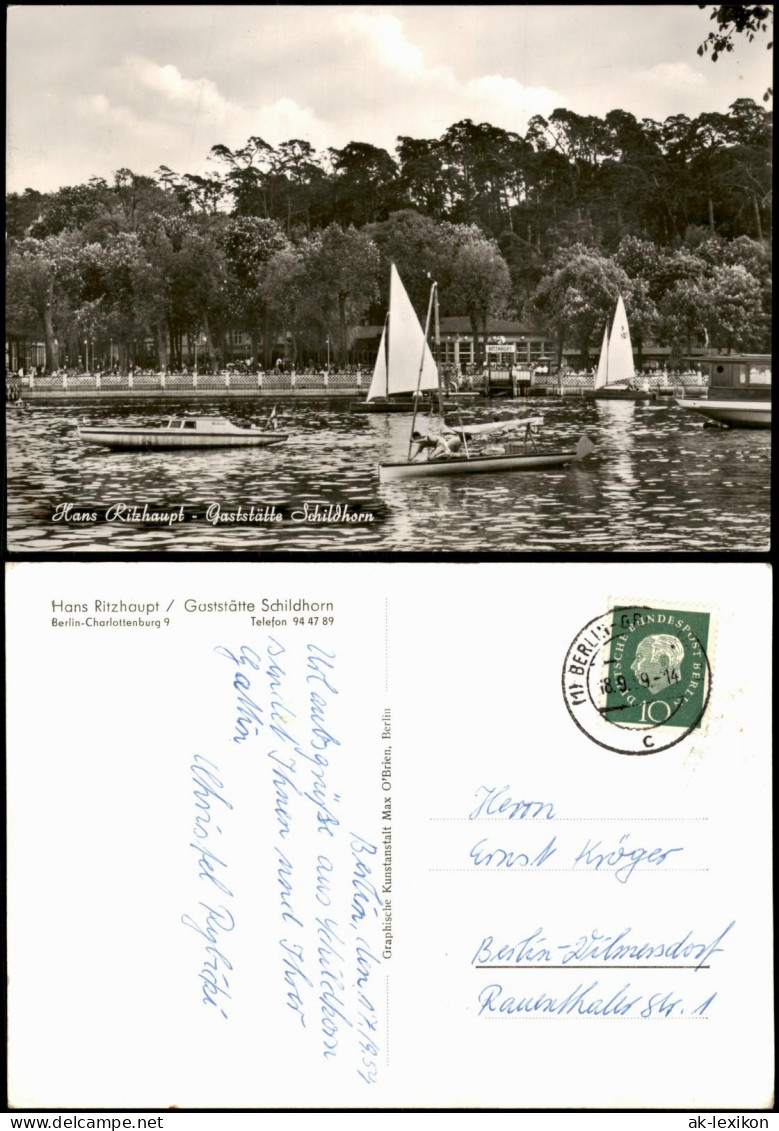 RITZHAUPT
Hans Ritzhaupt - Gaststätte Schildhorn
Hans Ritzhaupt / Gaststätte Schildhorn
Berlin-Charlottenburg 9 Telefon 94 47 89
Berlin, den 17./9.59
Urlaubsgrüße aus Schildhorn
sendet Ihnen und Ihrer
Gattin
Christel
Graphische Kunstanstalt Max O'Brien, Berlin
(1) BERLIN-
18.9. 9.-14
c
DEUTSCHE BUNDESPOST BERLIN
10
Herrn
Ernst Kröger
Berlin-Wilmersdorf
Rauenthaler Str. 1
www.delcampe.net
ak-lexikon